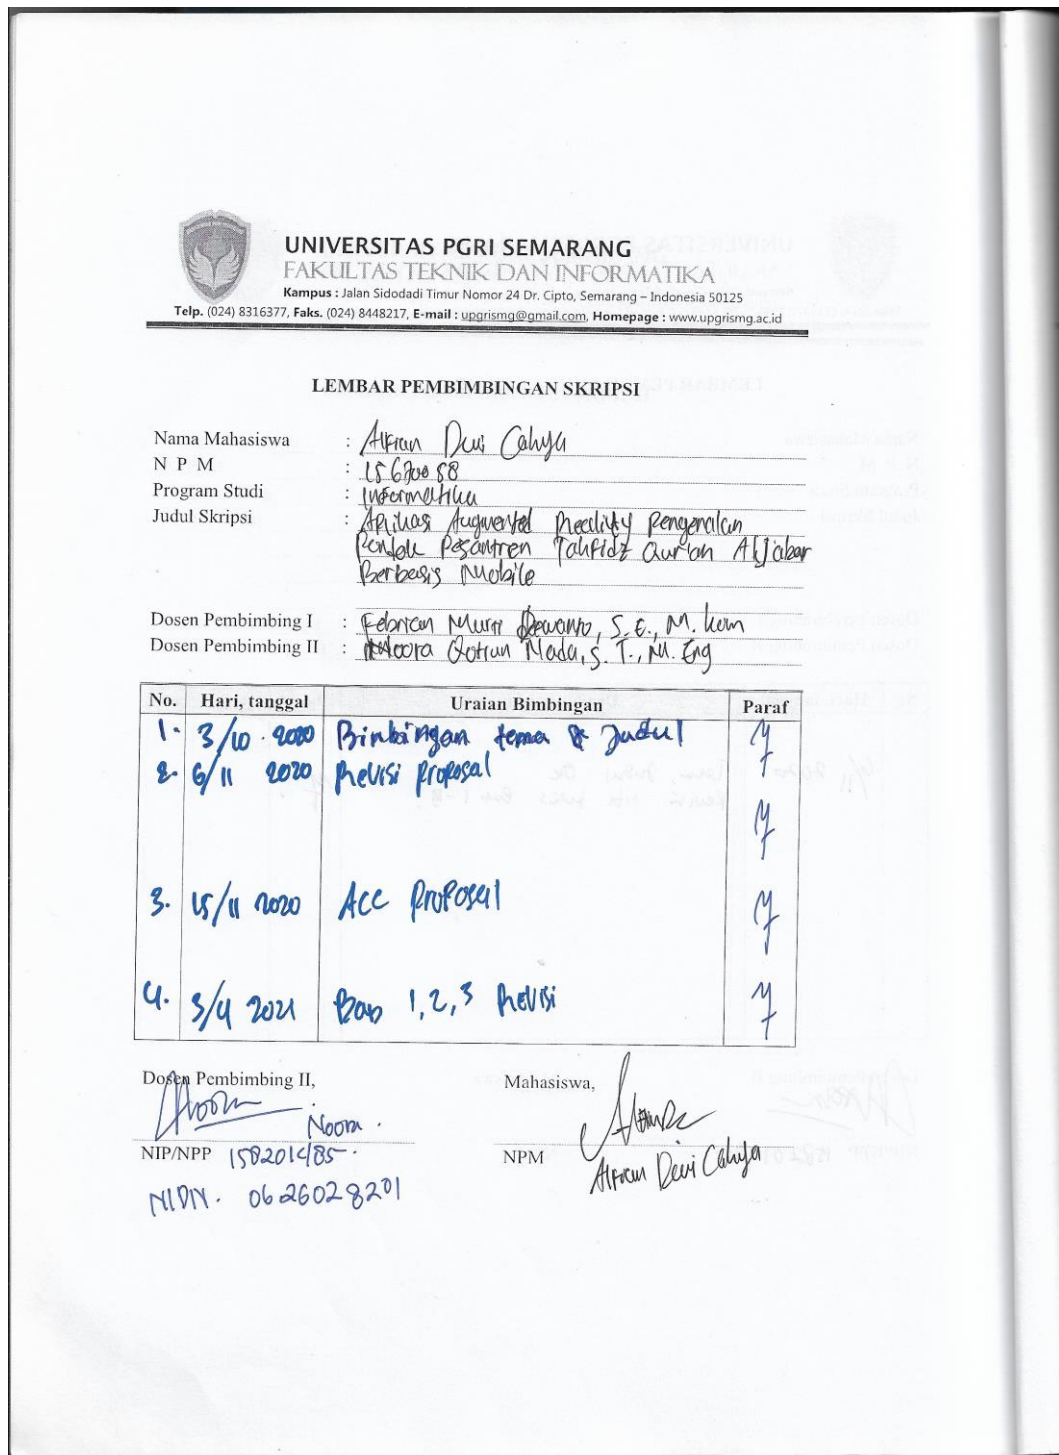 UNIVERSITAS PGRI SEMARANG
FAKULTAS TEKNIK DAN INFORMATIKA
Kampus : Jalan Sidodadi Timur Nomor 24 Dr. Cipto, Semarang – Indonesia 50125
Telp. (024) 8316377, Faks. (024) 8448217, E-mail : upgrismg@gmail.com, Homepage : www.upgrismg.ac.id
LEMBAR PEMBIMBINGAN SKRIPSI
Nama Mahasiswa : Alfian Dwi Cahya
N P M : 15670058
Program Studi : Informatika
Judul Skripsi : Aplikasi Augmented Reality Pengenalan
Pondok Pesantren Tahfidz Qur'an Al Jabar
Berbasis Mobile
Dosen Pembimbing I : Febrian Murti Dewanto, S.E., M. Kom
Dosen Pembimbing II : Noora Qotrun Nada, S. T., M. Eng
No. Hari, tanggal Uraian Bimbingan Paraf
1. 3/10 . 2020 Bimbingan tema & Judul
2. 6/11 2020 Revisi proposal
3. 15/11 2020 ACC proposal
4. 3/4 2021 Bab 1, 2, 3 Revisi
Dosen Pembimbing II, Mahasiswa,
Noora .
NIP/NPP NPM
Alfian Dwi Cahya
NIDN. 0626028201